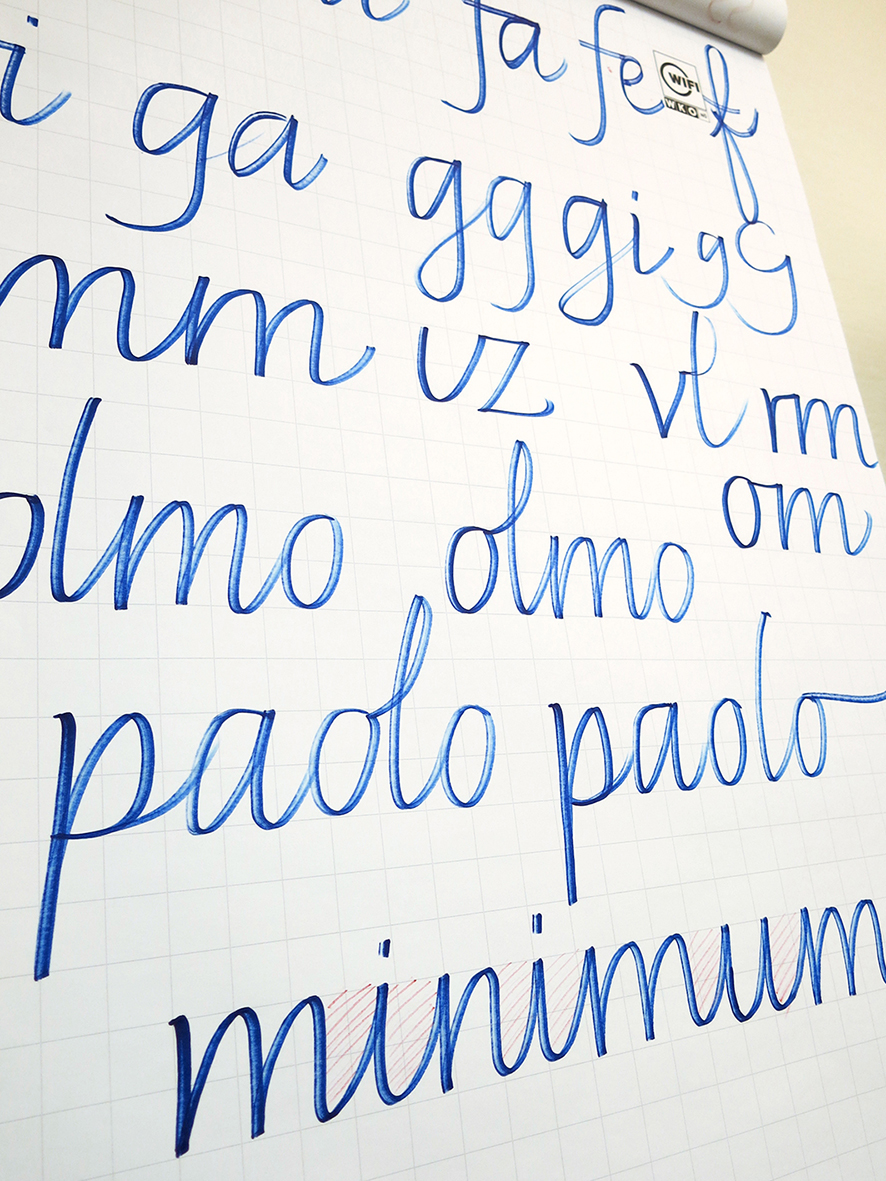 fa fe f
WIFI
WKO
i ga gg gi gg
nm vz vl rm
olmo olmo om
paolo paolo
minimum